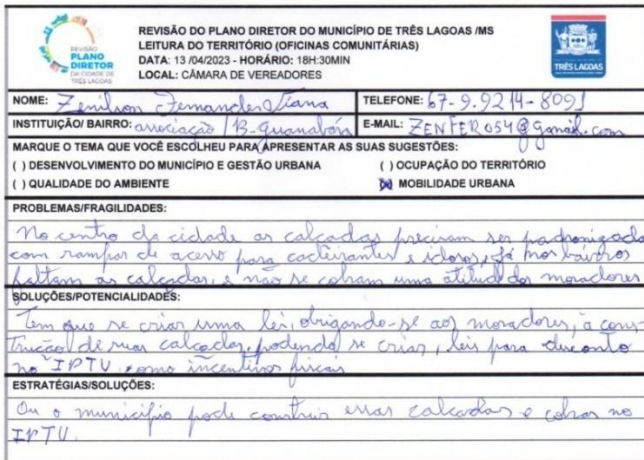 REVISÃO DO PLANO DIRETOR DO MUNICÍPIO DE TRÊS LAGOAS /MS
LEITURA DO TERRITÓRIO (OFICINAS COMUNITÁRIAS)
DATA: 13 /04/2023 - HORÁRIO: 18H:30MIN
LOCAL: CÂMARA DE VEREADORES
REVISÃO
PLANO
DIRETOR
DA CIDADE DE
TRÊS LAGOAS
TRÊS LAGOAS
NOME: Zenilson Fernandes Viana TELEFONE: 67-9.9214-8091
INSTITUIÇÃO/ BAIRRO: associação / B. Guanabára E-MAIL: ZENFER054@gmail.com
MARQUE O TEMA QUE VOCÊ ESCOLHEU PARA APRESENTAR AS SUAS SUGESTÕES:
( ) DESENVOLVIMENTO DO MUNICÍPIO E GESTÃO URBANA ( ) OCUPAÇÃO DO TERRITÓRIO
( ) QUALIDADE DO AMBIENTE (X) MOBILIDADE URBANA
PROBLEMAS/FRAGILIDADES:
No centro da cidade as calçadas precisam ser padronizadas
com rampas de acesso para cadeirantes e idosos, já nos bairros
faltam as calçadas, e não se cobram uma atitud dos moradores
SOLUÇÕES/POTENCIALIDADES:
Tem que se criar uma lei, obrigando-se aos moradores, a cons-
trução de suas calçadas, podendo se criar, leis para disconto
no IPTU como incentivos fiscais
ESTRATÉGIAS/SOLUÇÕES:
Ou o município pode construir essas calçadas e cobrar no
IPTU.